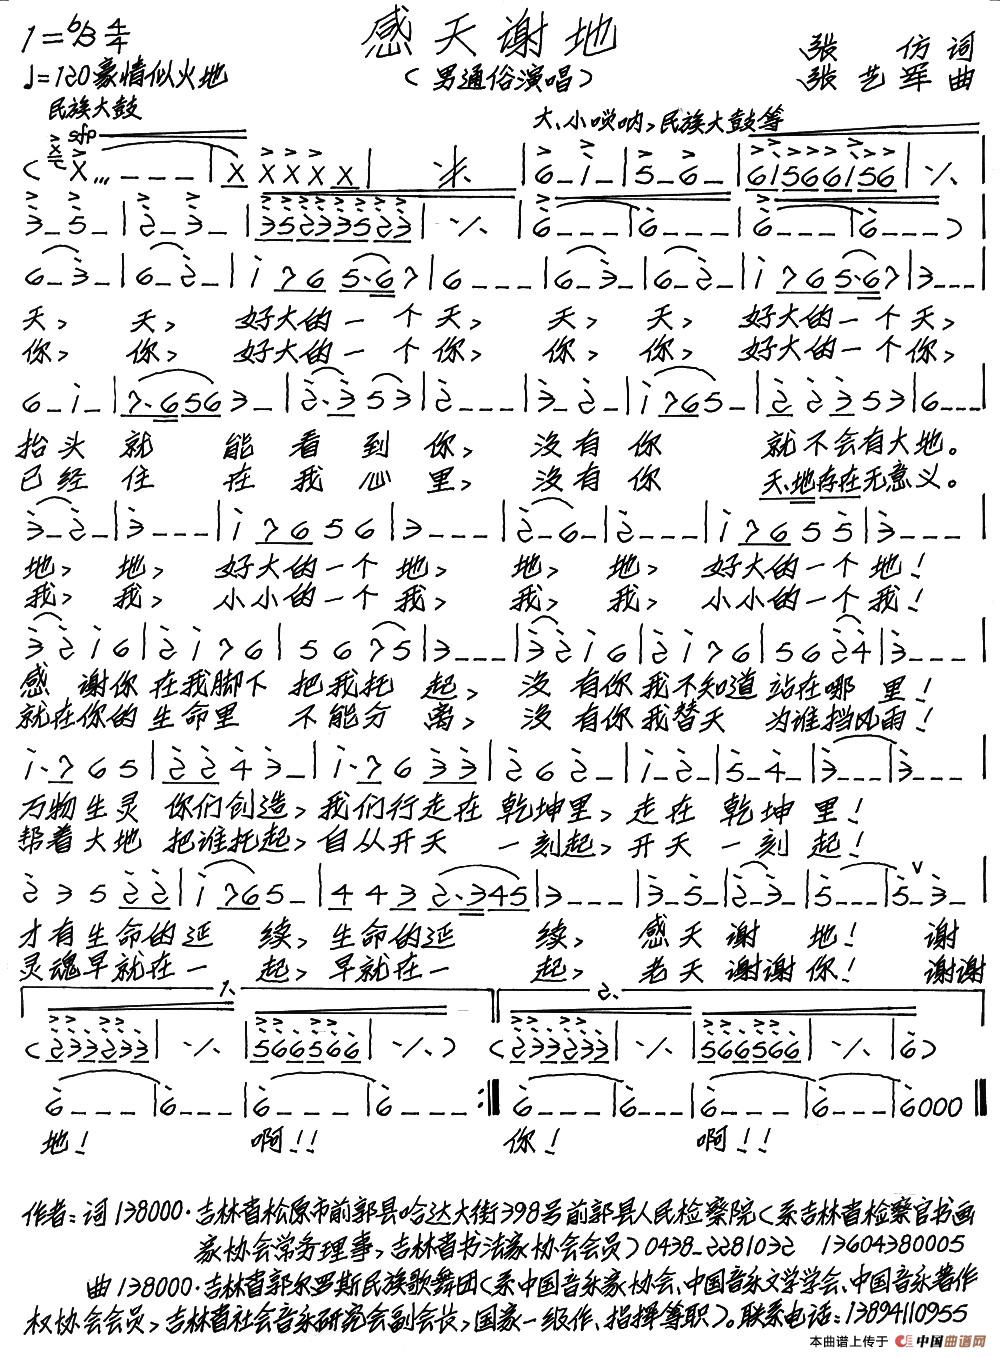 感天谢地
1=♭B 4/4
(男通俗演唱)
张 仿 词
张艺军 曲
♩=120 豪情似火地
民族大鼓
sfp
大、小唢呐,民族大鼓等
天, 天, 好大的一个天, 天, 天, 好大的一个天,
你, 你, 好大的一个你, 你, 你, 好大的一个你,
抬头就 能看到你, 没有你 就不会有大地。
已经住 在我心里, 没有你 天、地存在无意义。
地, 地, 好大的一个地, 地, 地, 好大的一个地!
我, 我, 小小的一个我, 我, 我, 小小的一个我!
感 谢你在我脚下 把我托 起, 没有你我不知道站在哪 里!
就在你的生命里 不能分 离, 没有你我替天 为谁挡风雨!
万物生灵 你们创造,我们行走在乾坤里,走在 乾坤 里!
帮着大地 把谁托起,自从开天 一刻起,开天 一刻 起!
才有生命的延 续, 生命的延 续, 感天谢 地! 谢
灵魂早就在一 起, 早就在一 起, 老天谢谢你! 谢谢
1、 2、
地! 啊!! 你! 啊!!
作者:词138000·吉林省松原市前郭县哈达大街398号前郭县人民检察院(系吉林省检察官书画
家协会常务理事,吉林省书法家协会会员)0438_2281032 13604380005
曲138000·吉林省郭尔罗斯民族歌舞团(系中国音乐家协会、中国音乐文学学会、中国音乐著作
权协会会员,吉林省社会音乐研究会副会长,国家一级作、指挥等职)。联系电话:13894110955
本曲谱上传于 中国曲谱网